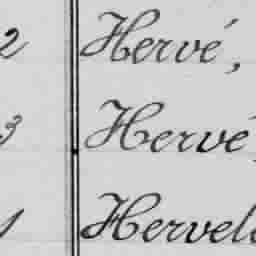 2 Hervé,
3 Hervé,
1 Hervel